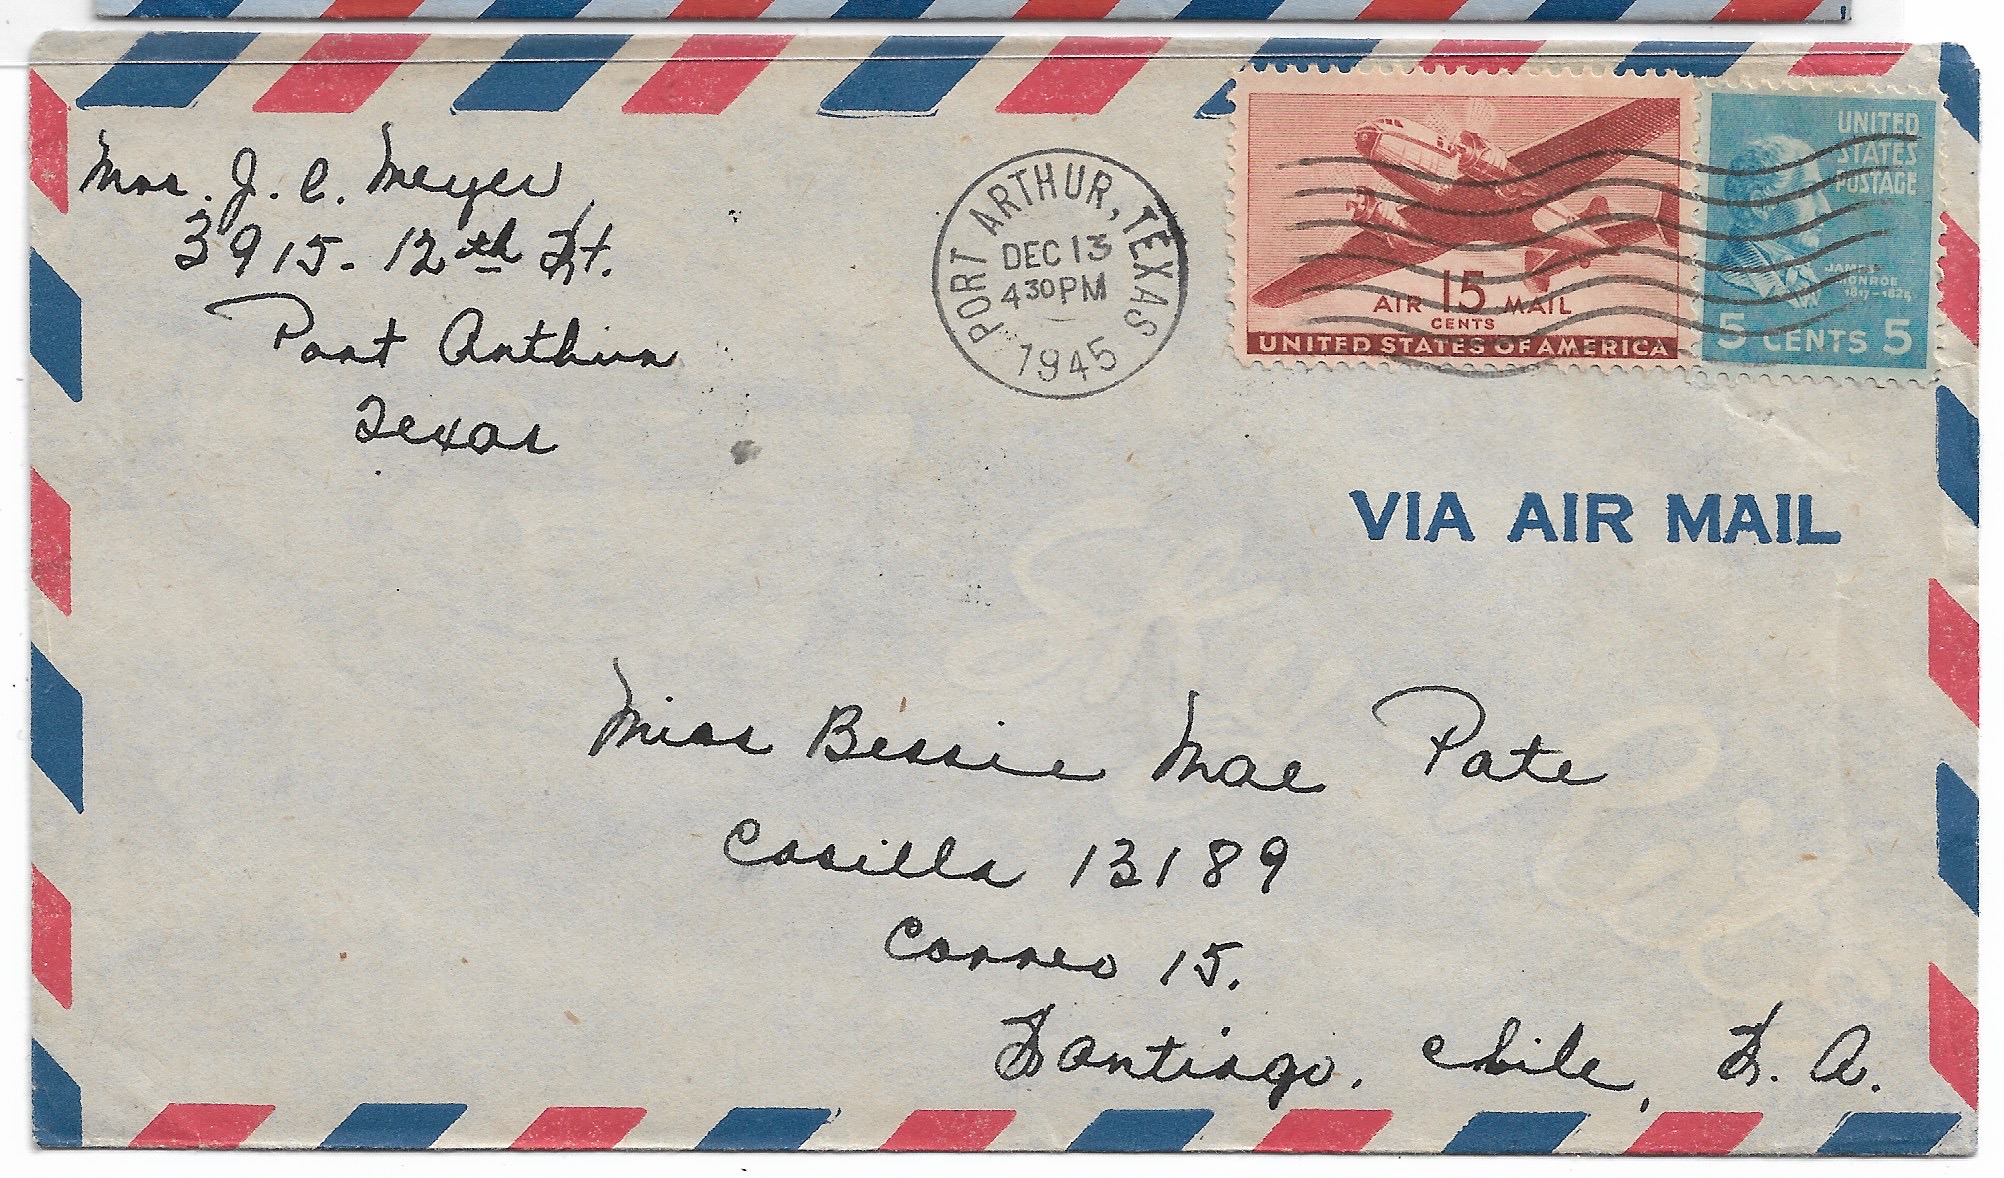 Mrs. J. C. Meyer,
3915 - 12th St.
Port Arthur
Texas
PORT ARTHUR, TEXAS
DEC 13
4 30 PM
1945
AIR 15 MAIL
CENTS
UNITED STATES OF AMERICA
UNITED
STATES
POSTAGE
JAMES
MONROE
1817-1825
5 CENTS 5
VIA AIR MAIL
Miss Bessie Mae Pate
Casilla 13189
Correo 15.
Santiago, Chile, S. A.